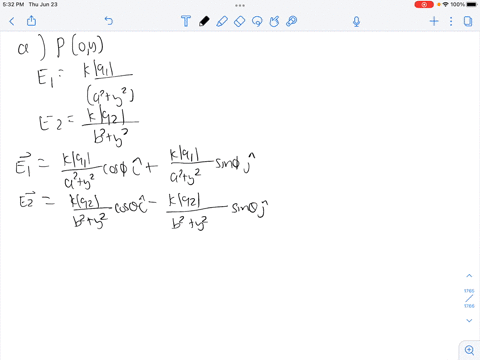 5:32 PM Thu Jun 23
100%
a) P (0,y)
E₁ = k|q₁| / (a²+y²)
E₂ = k|q₂| / b²+y²
E₁⃗ = k|q₁| / a²+y² cosϕ î + k|q₁| / a²+y² sinϕ ĵ
E₂⃗ = k|q₂| / b²+y² cosθ î − k|q₂| / b²+y² sinθ ĵ
1760
/
1760